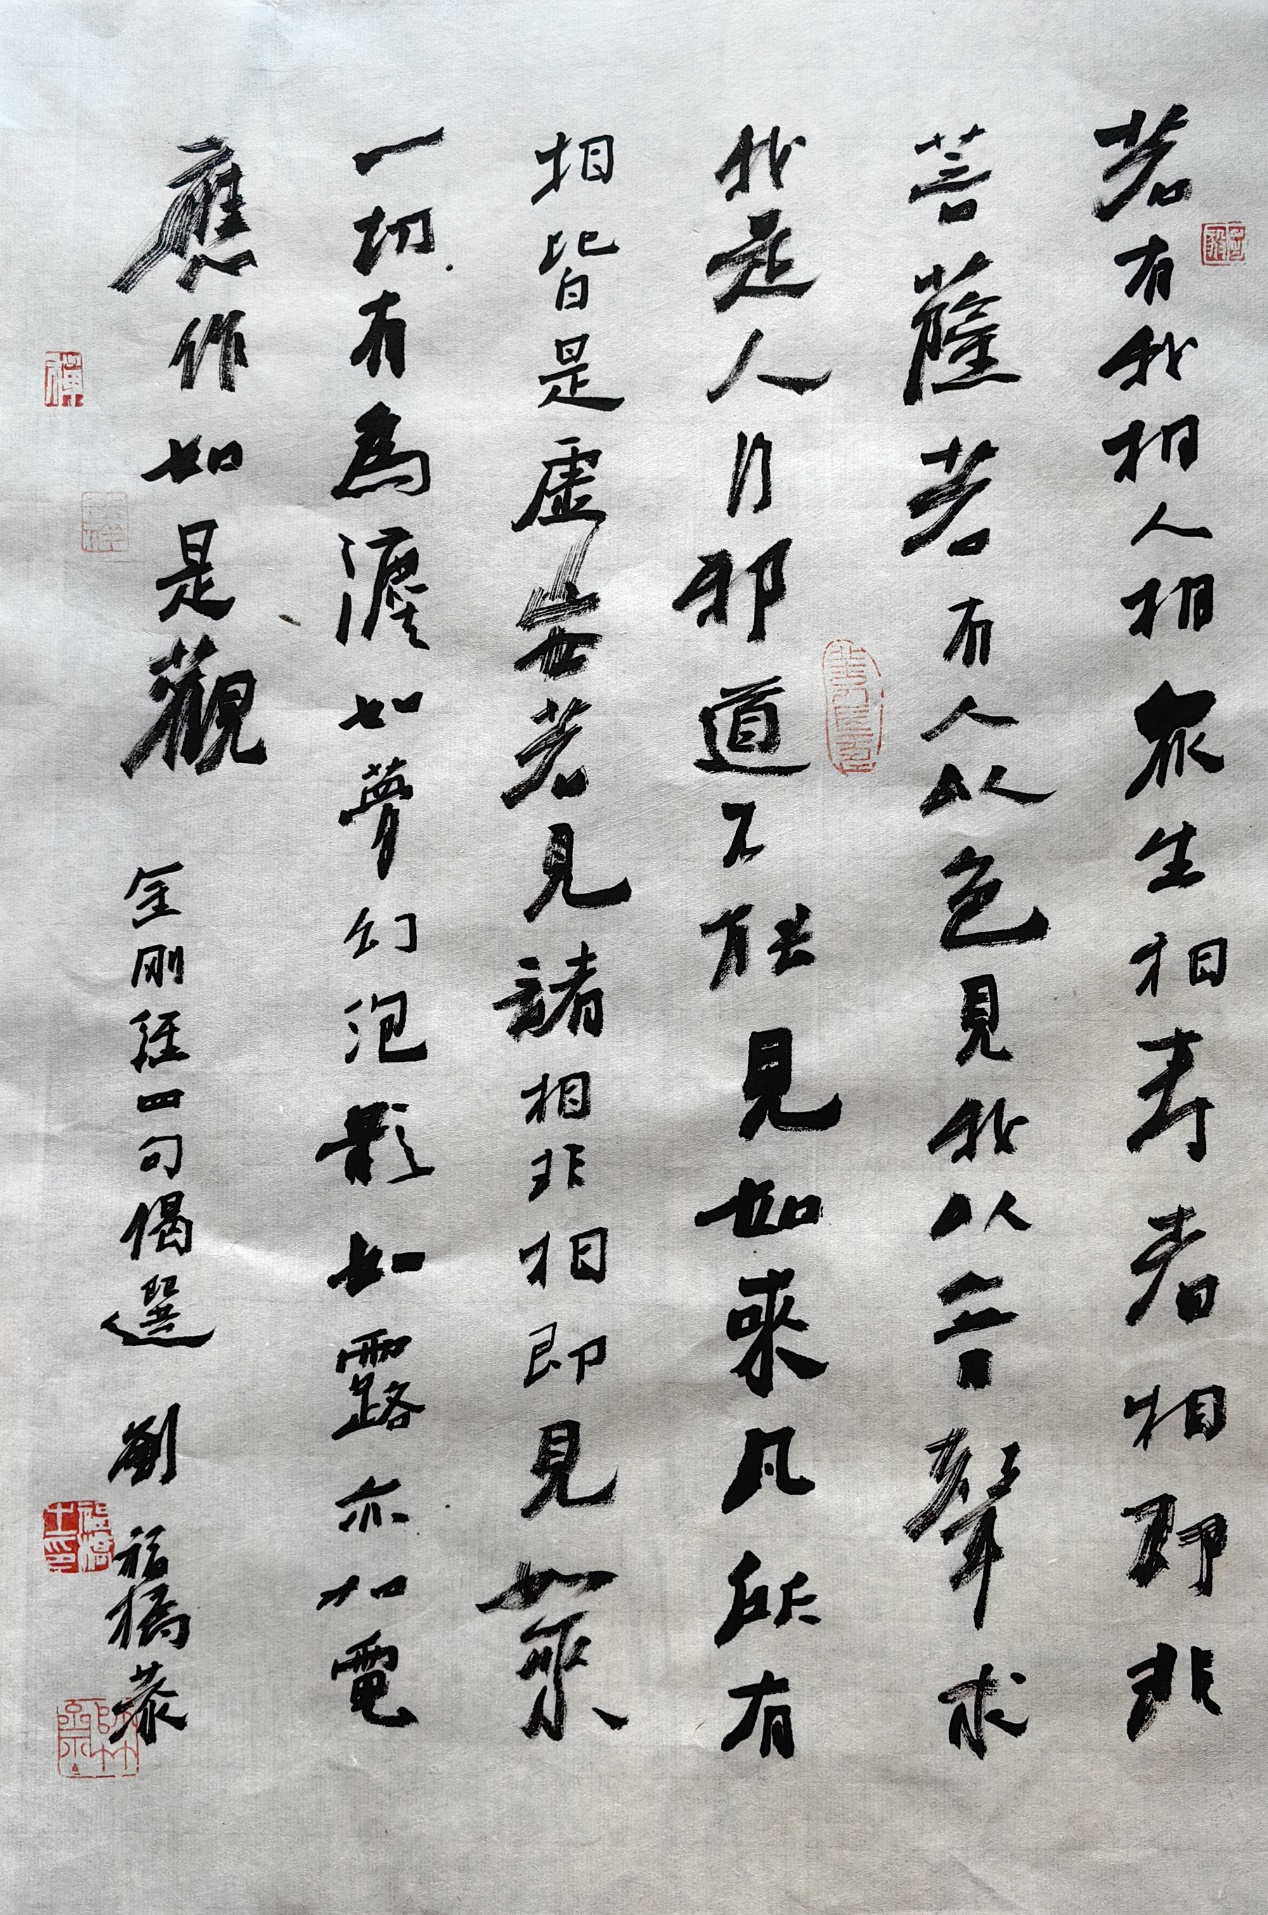 若有我相人相眾生相寿者相即非
菩薩若有人以色見我以音聲求
我是人行邪道不能見如來凡所有
相皆是虛妄若見諸相非相即見如來
一切有為灋如夢幻泡影如露亦如電
應作如是觀 金剛經四句偈選 劉福橋恭